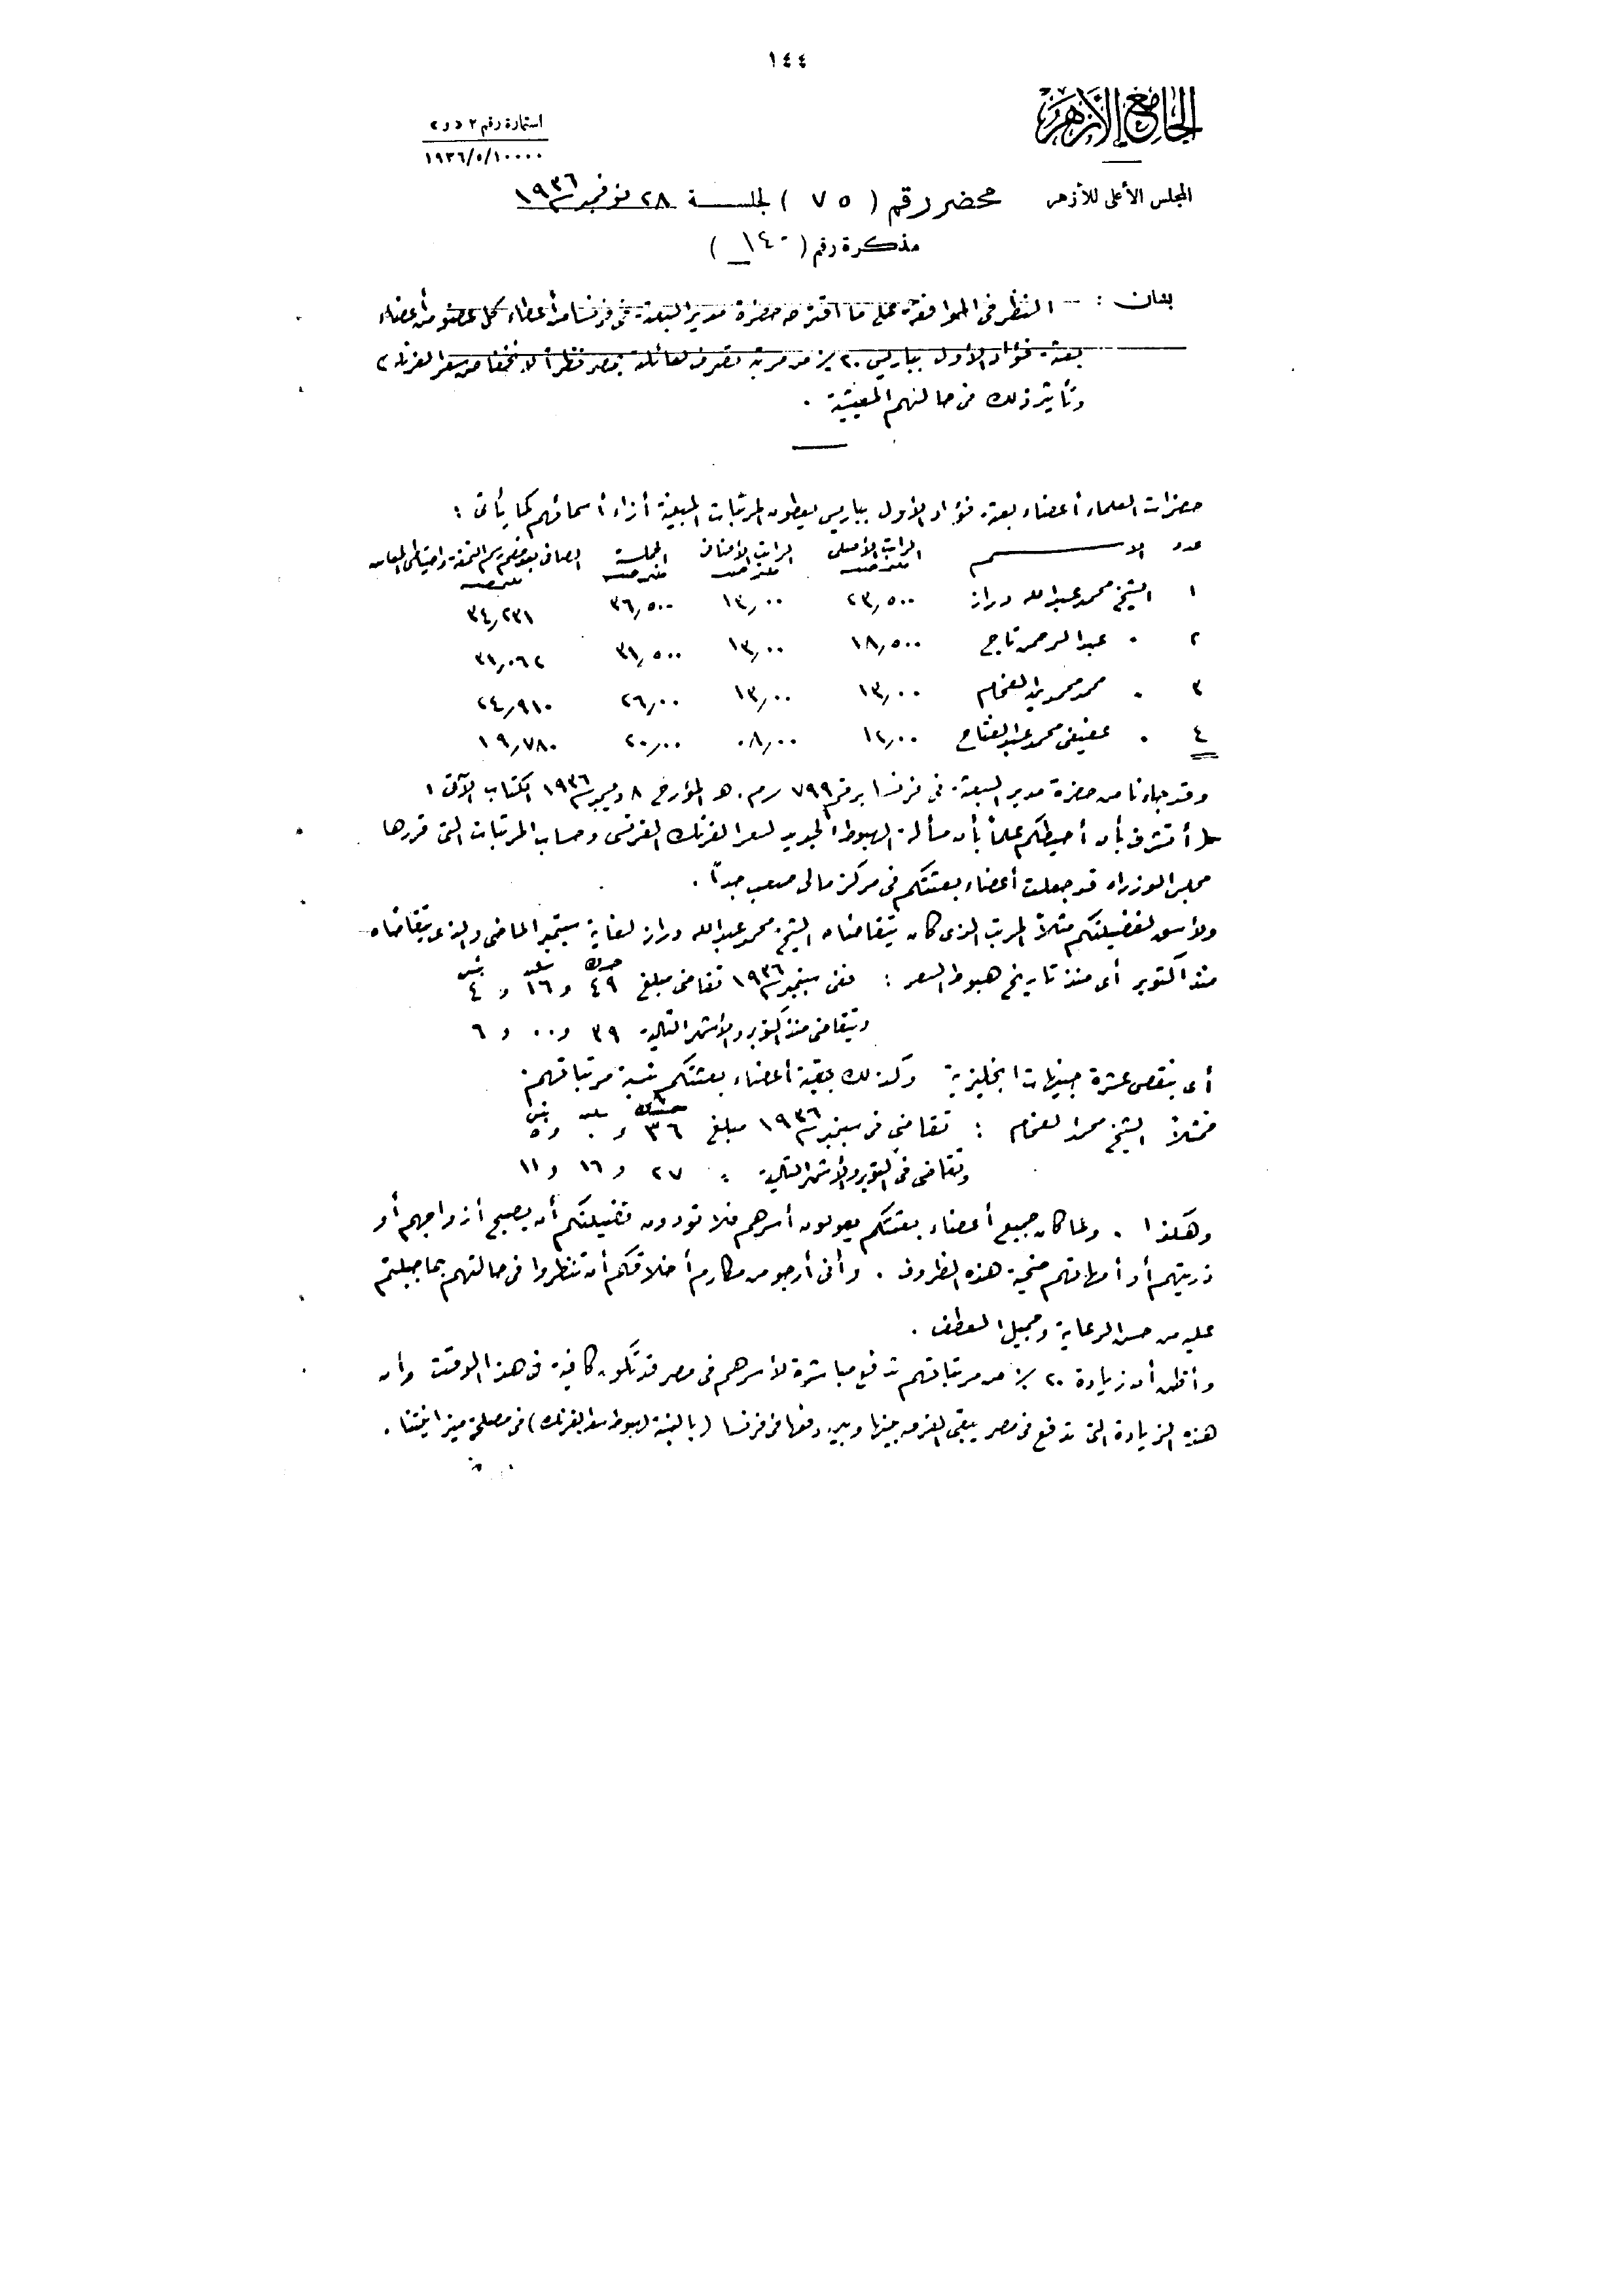 ١٤٤
الجامع الأزهر
استمارة رقم ٢ « و »
١٩٣٦/٥/١٠٠٠٠
المجلس الأعلى للأزهر محضر رقم ( ٧٥ ) لجلسة ٢٨ نوفمبر ١٩٣٦
مذكرة رقم ( ١٤٠ )
بشأن : - النظر فى الموافقة على ما اقترحه حضرة مدير البعثة فى فرنسا من أعطاء كل عضو من أعضاء
بعثة فؤاد الأول بباريس ٢٠ ٪ من مرتبه تصرف لعائلته بمصر نظراً لانخفاض سعر الفرنك
وتأثير ذلك فى حالتهم المعيشية .
حضرات العلماء أعضاء بعثة فؤاد الأول بباريس يعطون المرتبات المبينة أزاء أسمائهم كما يأتى :
عدد الاسم الراتب الأصلى الراتب الأضافى الجملة الصافى بعد خصم رسم التمغة واحتياطى المعاش
١ الشيخ محمد عبد الله دراز ٢٣,٥٠٠ ١٣,٠٠ ٣٦,٥٠٠ ٣٤,٢٣١
٢ " عبد الرحمن تاج ١٨,٥٠٠ ١٣,٠٠ ٣١,٥٠٠ ٣١,٠٦٢
٣ " محمد محمد الفحام ١٣,٠٠ ١٣,٠٠ ٢٦,٠٠ ٢٤,٩١٠
٤ " عفيفى محمد عبد الفتاح ١٢,٠٠ ٠٨,٠٠ ٢٠,٠٠ ١٩,٧٨٠
وقد جاءنا من حضرة مدير البعثة فى فرنسا برقم ٧٩٩ م . ه المؤرخ ٨ ديسمبر ١٩٣٦ الكتاب الآتى :
أتشرف بأن أحيطكم علماً بأن مسألة الهبوط الجديد لسعر الفرنك الفرنسى وحساب المرتبات التى قررها
مجلس الوزراء قد جعلت أعضاء بعثتكم فى مركز مالى صعب جداً .
ولأسوق لفضيلتكم مثلاً المرتب الذى كان يتقاضاه الشيخ محمد عبد الله دراز لغاية سبتمبر الماضى والذى يتقاضاه
منذ أكتوبر أى منذ تاريخ هبوط السعر : ففى سبتمبر ١٩٣٦ تقاضى مبلغ ٤٩ و ١٦ و ٤
ويتقاضى منذ أكتوبر والأشهر التالية ٣٩ و ٠٠ و ٦
أى بنقص عشرة جنيهات انجليزية وكذلك بقية أعضاء بعثتكم بنسبة مرتباتهم
فمثلاً الشيخ محمد الفحام : تقاضى فى سبتمبر ١٩٣٦ مبلغ ٣٦ و ٠ و ٥
وتقاضى فى أكتوبر والأشهر التالية " ٢٧ و ١٦ و ١١
وهكذا . ولما كان جميع أعضاء بعثتكم يعولون أسرهم فلا تودون فضيلتكم أن يصبح أزواجهم أو
ذريتهم أو أمهاتهم ضحية هذه الظروف . وأنى أرجو من مكارم أخلاقكم أن تنظروا فى حالتهم بما جبلتم
عليه من حسن الرعاية وجميل العطف .
وأظن أن زيادة ٢٠ ٪ من مرتباتهم تدفع مباشرة لأسرهم فى مصر قد تكون كافية فى هذا الوقت وأن
هذه الزيادة التى تدفع فى مصر يبقى الفرق بينها وبين دفعها فى فرنسا ( بالنسبة لهبوط سعر الفرنك ) فى مصلحة ميزانيتنا .